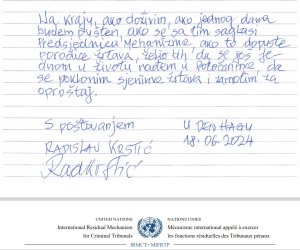 Na kraju, ako doživim, ako jednog dana
budem pušten, ako se sa tim saglasi
Predsjednica Mehanizma, ako to dopuste
porodice žrtava, želio bih, da se još je-
dnom u životu nađem u Potočarima, da
se poklonim sjenima žrtava i zamolim za
oproštaj.
S poštovanjem
U DEN HAGU
RADISLAV KRSTIĆ
18.06.2024
UNITED NATIONS
International Residual Mechanism
for Criminal Tribunals
NATIONS UNIES
Mécanisme international appelé à exercer
les fonctions résiduelles des Tribunaux pénaux
IRMCT • MIFRTP